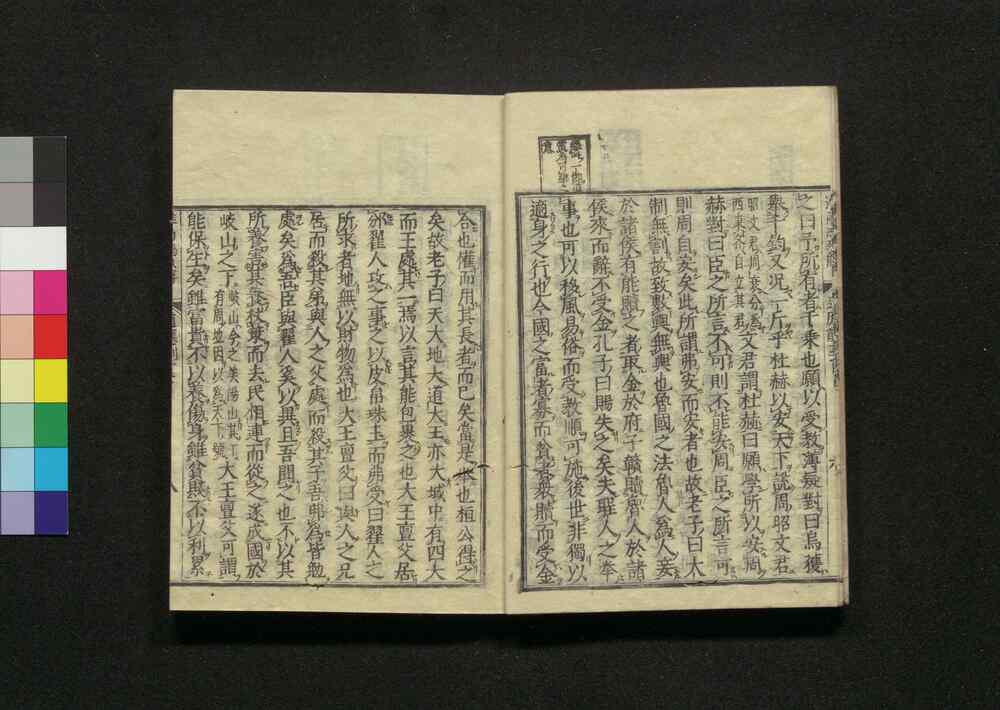 之曰予所有者千乘也願以受教薄疑對曰烏獲
擧千鈞又況一斤乎杜赫以安天下說周昭文君
昭文君周衰分爲
西東各自立其君
文君謂杜赫曰願學所以安周
赫對曰臣之所言不可則不能安周臣之所言可
則周自安矣此所謂弗安而安者也故老子曰大
制無割故致數輿無輿也魯國之法魯人爲人妾
於諸侯有能贖之者取金於府子贛贖魯人於諸
侯來而辭不受金孔子曰賜失之矣夫聖人之擧
事也可以移風易俗而受教順可施後世非獨以
適身之行也今國之富者寡而貧者衆贖而受金
合也權而用其長者而已矣當是擧也桓公得之
矣故老子曰天大地大道大王亦大域中有四大
而王處其一焉以言其能包裹之也大王亶父居
邠翟人攻之事之以皮帛珠玉而弗受曰翟人之
所求者地無以財物爲也大王亶父曰與人之兄
居而殺其弟與人之父處而殺其子吾弗爲皆勉
處矣爲吾臣與翟人奚以異且吾聞之也不以其
所養害其養杖策而去民相連而從之遂成國於
岐山之下
岐山今之美陽山其下
有周地因以爲天下號
大王亶父可謂
能保生矣雖富貴不以養傷身雖貧賤不以利累